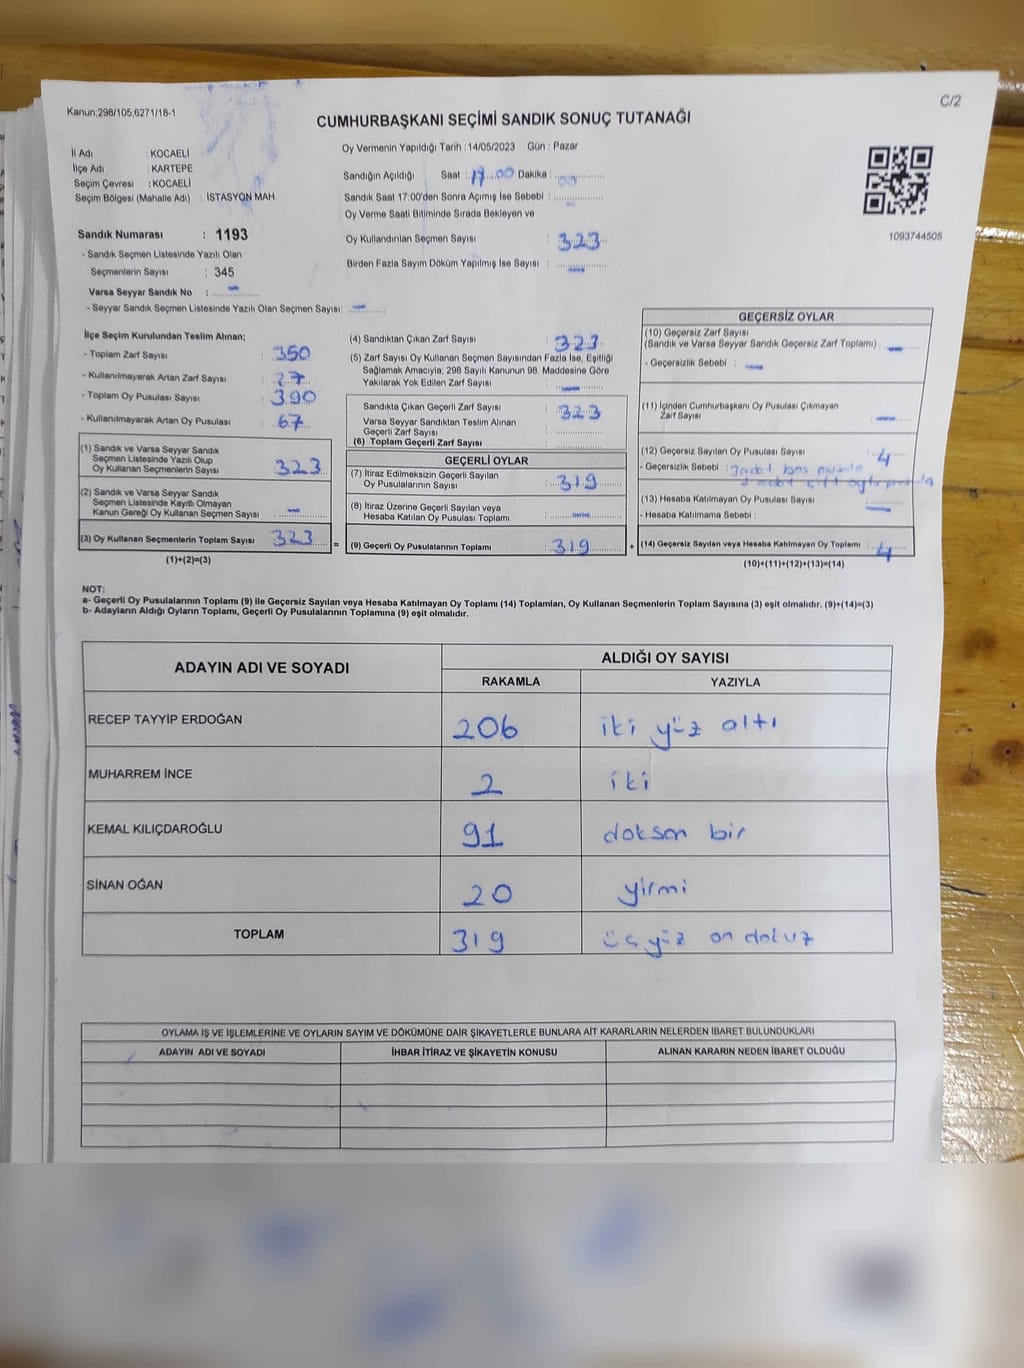 Kanun;298/105;6271/16-1
C/2
CUMHURBAŞKANI SEÇİMİ SANDIK SONUÇ TUTANAĞI
Oy Vermenin Yapıldığı Tarih : 14/05/2023 Gün : Pazar
İl Adı : KOCAELİ
İlçe Adı : KARTEPE
Seçim Çevresi : KOCAELİ
Seçim Bölgesi (Mahalle Adı) : İSTASYON MAH.
Sandık Numarası : 1193
- Sandık Seçmen Listesinde Yazılı Olan
Seçmenlerin Sayısı : 345
Varsa Seyyar Sandık No : -
- Seyyar Sandık Seçmen Listesinde Yazılı Olan Seçmen Sayısı: -
Sandığın Açıldığı Saat : 17.00 Dakika : 00
Sandık Saat 17:00'den Sonra Açmış İse Sebebi : -
Oy Verme Saati Bitiminde Sırada Bekleyen ve
Oy Kullandırılan Seçmen Sayısı : 323
Birden Fazla Sayım Döküm Yapılmış İse Sayısı : -
1093744505
İlçe Seçim Kurulundan Teslim Alınan;
- Toplam Zarf Sayısı : 350
- Kullanılmayarak Artan Zarf Sayısı : 27
- Toplam Oy Pusulası Sayısı : 390
- Kullanılmayarak Artan Oy Pusulası : 67
(1) Sandık ve Varsa Seyyar Sandık
Seçmen Listesinde Yazılı Olup
Oy Kullanan Seçmenlerin Sayısı : 323
(2) Sandık ve Varsa Seyyar Sandık
Seçmen Listesinde Kayıtlı Olmayan
Kanun Gereği Oy Kullanan Seçmen Sayısı : -
(3) Oy Kullanan Seçmenlerin Toplam Sayısı : 323 =
(1)+(2)=(3)
(4) Sandıktan Çıkan Zarf Sayısı : 323
(5) Zarf Sayısı Oy Kullanan Seçmen Sayısından Fazla İse, Eşitliği
Sağlamak Amacıyla; 298 Sayılı Kanunun 98. Maddesine Göre
Yakılarak Yok Edilen Zarf Sayısı : -
Sandıkta Çıkan Geçerli Zarf Sayısı : 323
Varsa Seyyar Sandıktan Teslim Alınan
Geçerli Zarf Sayısı :
(6) Toplam Geçerli Zarf Sayısı :
GEÇERLİ OYLAR
(7) İtiraz Edilmeksizin Geçerli Sayılan
Oy Pusulalarının Sayısı : 319
(8) İtiraz Üzerine Geçerli Sayılan veya
Hesaba Katılan Oy Pusulası Toplamı : -
(9) Geçerli Oy Pusulalarının Toplamı : 319 +
GEÇERSİZ OYLAR
(10) Geçersiz Zarf Sayısı
(Sandık ve Varsa Seyyar Sandık Geçersiz Zarf Toplamı) : -
- Geçersizlik Sebebi : -
(11) İçinden Cumhurbaşkanı Oy Pusulası Çıkmayan
Zarf Sayısı : -
(12) Geçersiz Sayılan Oy Pusulası Sayısı : 4
- Geçersizlik Sebebi : boş
çift
(13) Hesaba Katılmayan Oy Pusulası Sayısı : -
- Hesaba Katılmama Sebebi :
(14) Geçersiz Sayılan veya Hesaba Katılmayan Oy Toplamı : 4
(10)+(11)+(12)+(13)=(14)
NOT:
a- Geçerli Oy Pusulalarının Toplamı (9) ile Geçersiz Sayılan veya Hesaba Katılmayan Oy Toplamı (14) Toplamları, Oy Kullanan Seçmenlerin Toplam Sayısına (3) eşit olmalıdır. (9)+(14)=(3)
b- Adayların Aldığı Oyların Toplamı, Geçerli Oy Pusulalarının Toplamına (9) eşit olmalıdır.
ADAYIN ADI VE SOYADI
ALDIĞI OY SAYISI
RAKAMLA YAZIYLA
RECEP TAYYİP ERDOĞAN 206 iki yüz altı
MUHARREM İNCE 2 iki
KEMAL KILIÇDAROĞLU 91 doksan bir
SİNAN OĞAN 20 yirmi
TOPLAM 319 üç yüz on dokuz
OYLAMA İŞ VE İŞLEMLERİNE VE OYLARIN SAYIM VE DÖKÜMÜNE DAİR ŞİKAYETLERLE BUNLARA AİT KARARLARIN NELERDEN İBARET BULUNDUKLARI
ADAYIN ADI VE SOYADI İHBAR İTİRAZ VE ŞİKAYETİN KONUSU ALINAN KARARIN NEDEN İBARET OLDUĞU